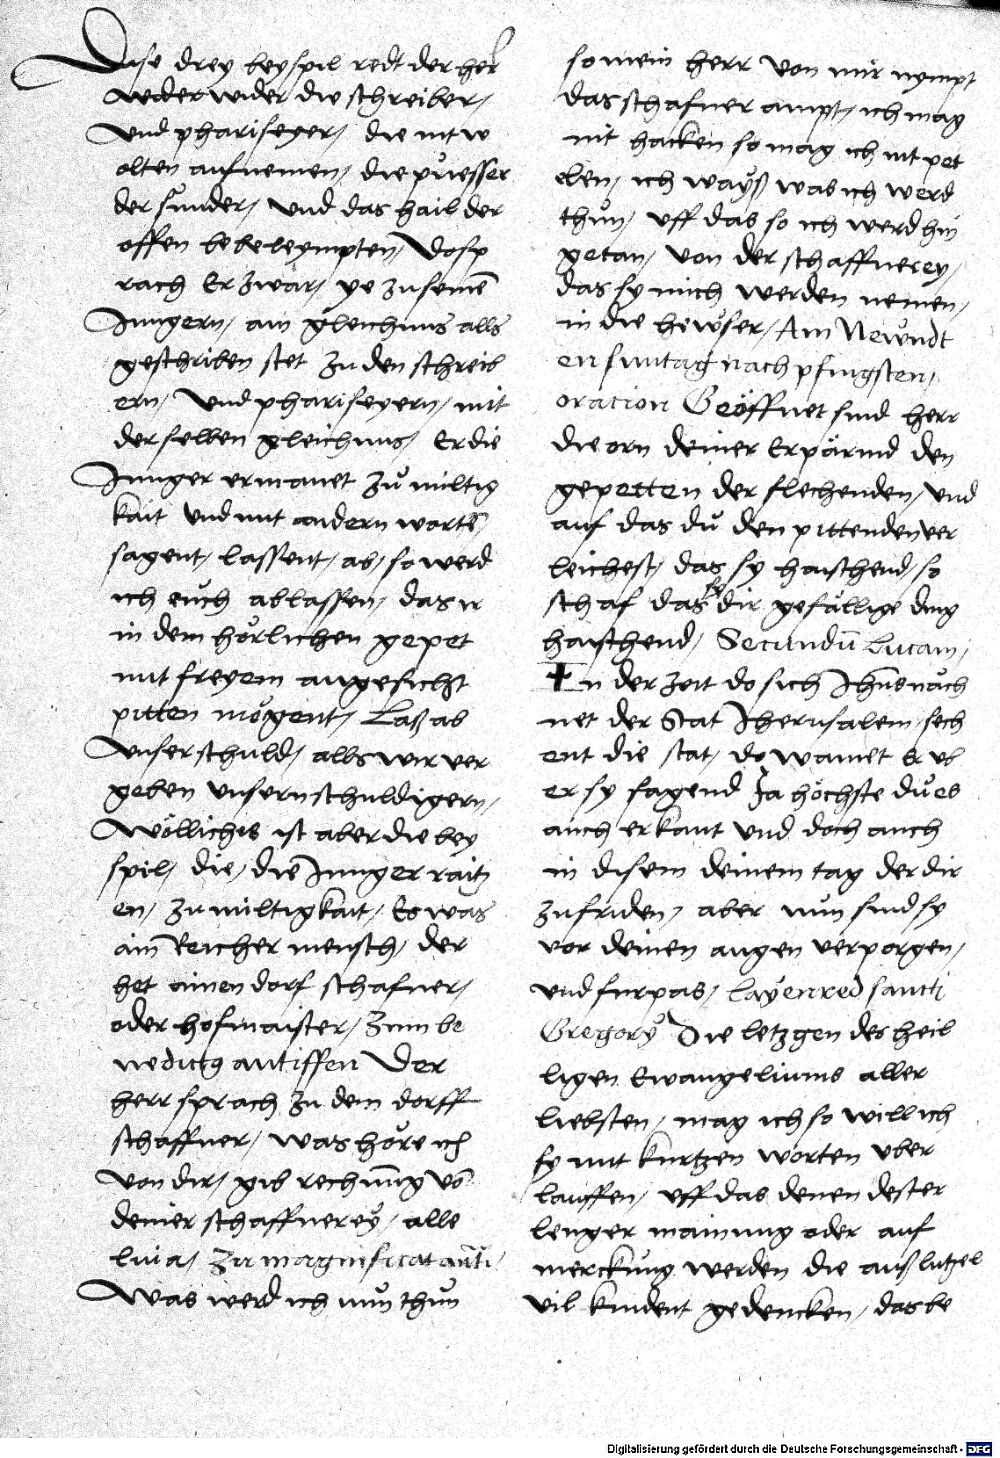 Dise drey beyspil redt der herr
wider wider die schreiber,
vnd phariseyer, die nit w
olten aufnemen, die püesser
der sünder, vnd das hail der
offen bekeleympten, Do sp
rach Er zwar, ye zu seinē
Jungern, ain gleichnus alls
geschriben stet zu den schreib
ern, vnd phariseyern, mit
derselben gleichnus, Er die
Junger ermanet zů miltig
kait vnd mit andern wortē
sagent, lassent, ab, so werd
ich euch ablassen, das ir
in dem hörlichen gepet
mit freyem angesicht
pitten mögent, Laß ab
vnser schuld, alls wir ver
geben vnsern schuldigern,
Wölliches ist aber die bey
spil, die, die Junger raitz
en, zu miltigkait, Es was
ain Reicher mensch, der
het ainen dorf schafner,
oder hofmaister, Zum be
nedictus antiffen Der
herr sprach zu dem dorff
schaffner, was höre ich
von dir, gib rechnung vō
deiner schaffnerey, alle
luia, Zu magnificat anti,
Was werd ich nun thun
so mein herr von mir nympt
das schafner ampt, ich mag
nit hacken so mag ich nit pet
elen, ich wayß was ich werd
thůn, vff das so ich werd hin
getan, von der schaffnerey,
das sy mich werden nemen,
in die hewser, Am Newndt
en suntag nach pfingsten,
oracion Geöffnet sind herr
die orn deiner Erpärmd den
gepetten der flechenden, vnd
auf das dů den pittenden ver
leichest, das sy haischend, so
schaf das sy dir gefällige ding
haischend, Secundū Lucam,
In der zeit do sich Jhūs näch
net der Stat Jherusalem, sech
ent die stat, do wainet Er vb
er sy sagend Ja höchste du es
auch erkant vnd doch auch
in disem deinem tag der dir
zufriden, aber nun sind sy
vor deinen augen verporgen,
vnd furpas, layenred sancti
Gregorÿ Die letzgen des heil
ligen Ewangeliums aller
liebsten, mag ich so will ich
sy mit kurtzen worten vber
lauffen, vff das denen dester
lenger mainung oder auf
merckung werden die auß lutzel
vil kindent gedencken, das be
Digitalisierung gefördert durch die Deutsche Forschungsgemeinschaft - DFG